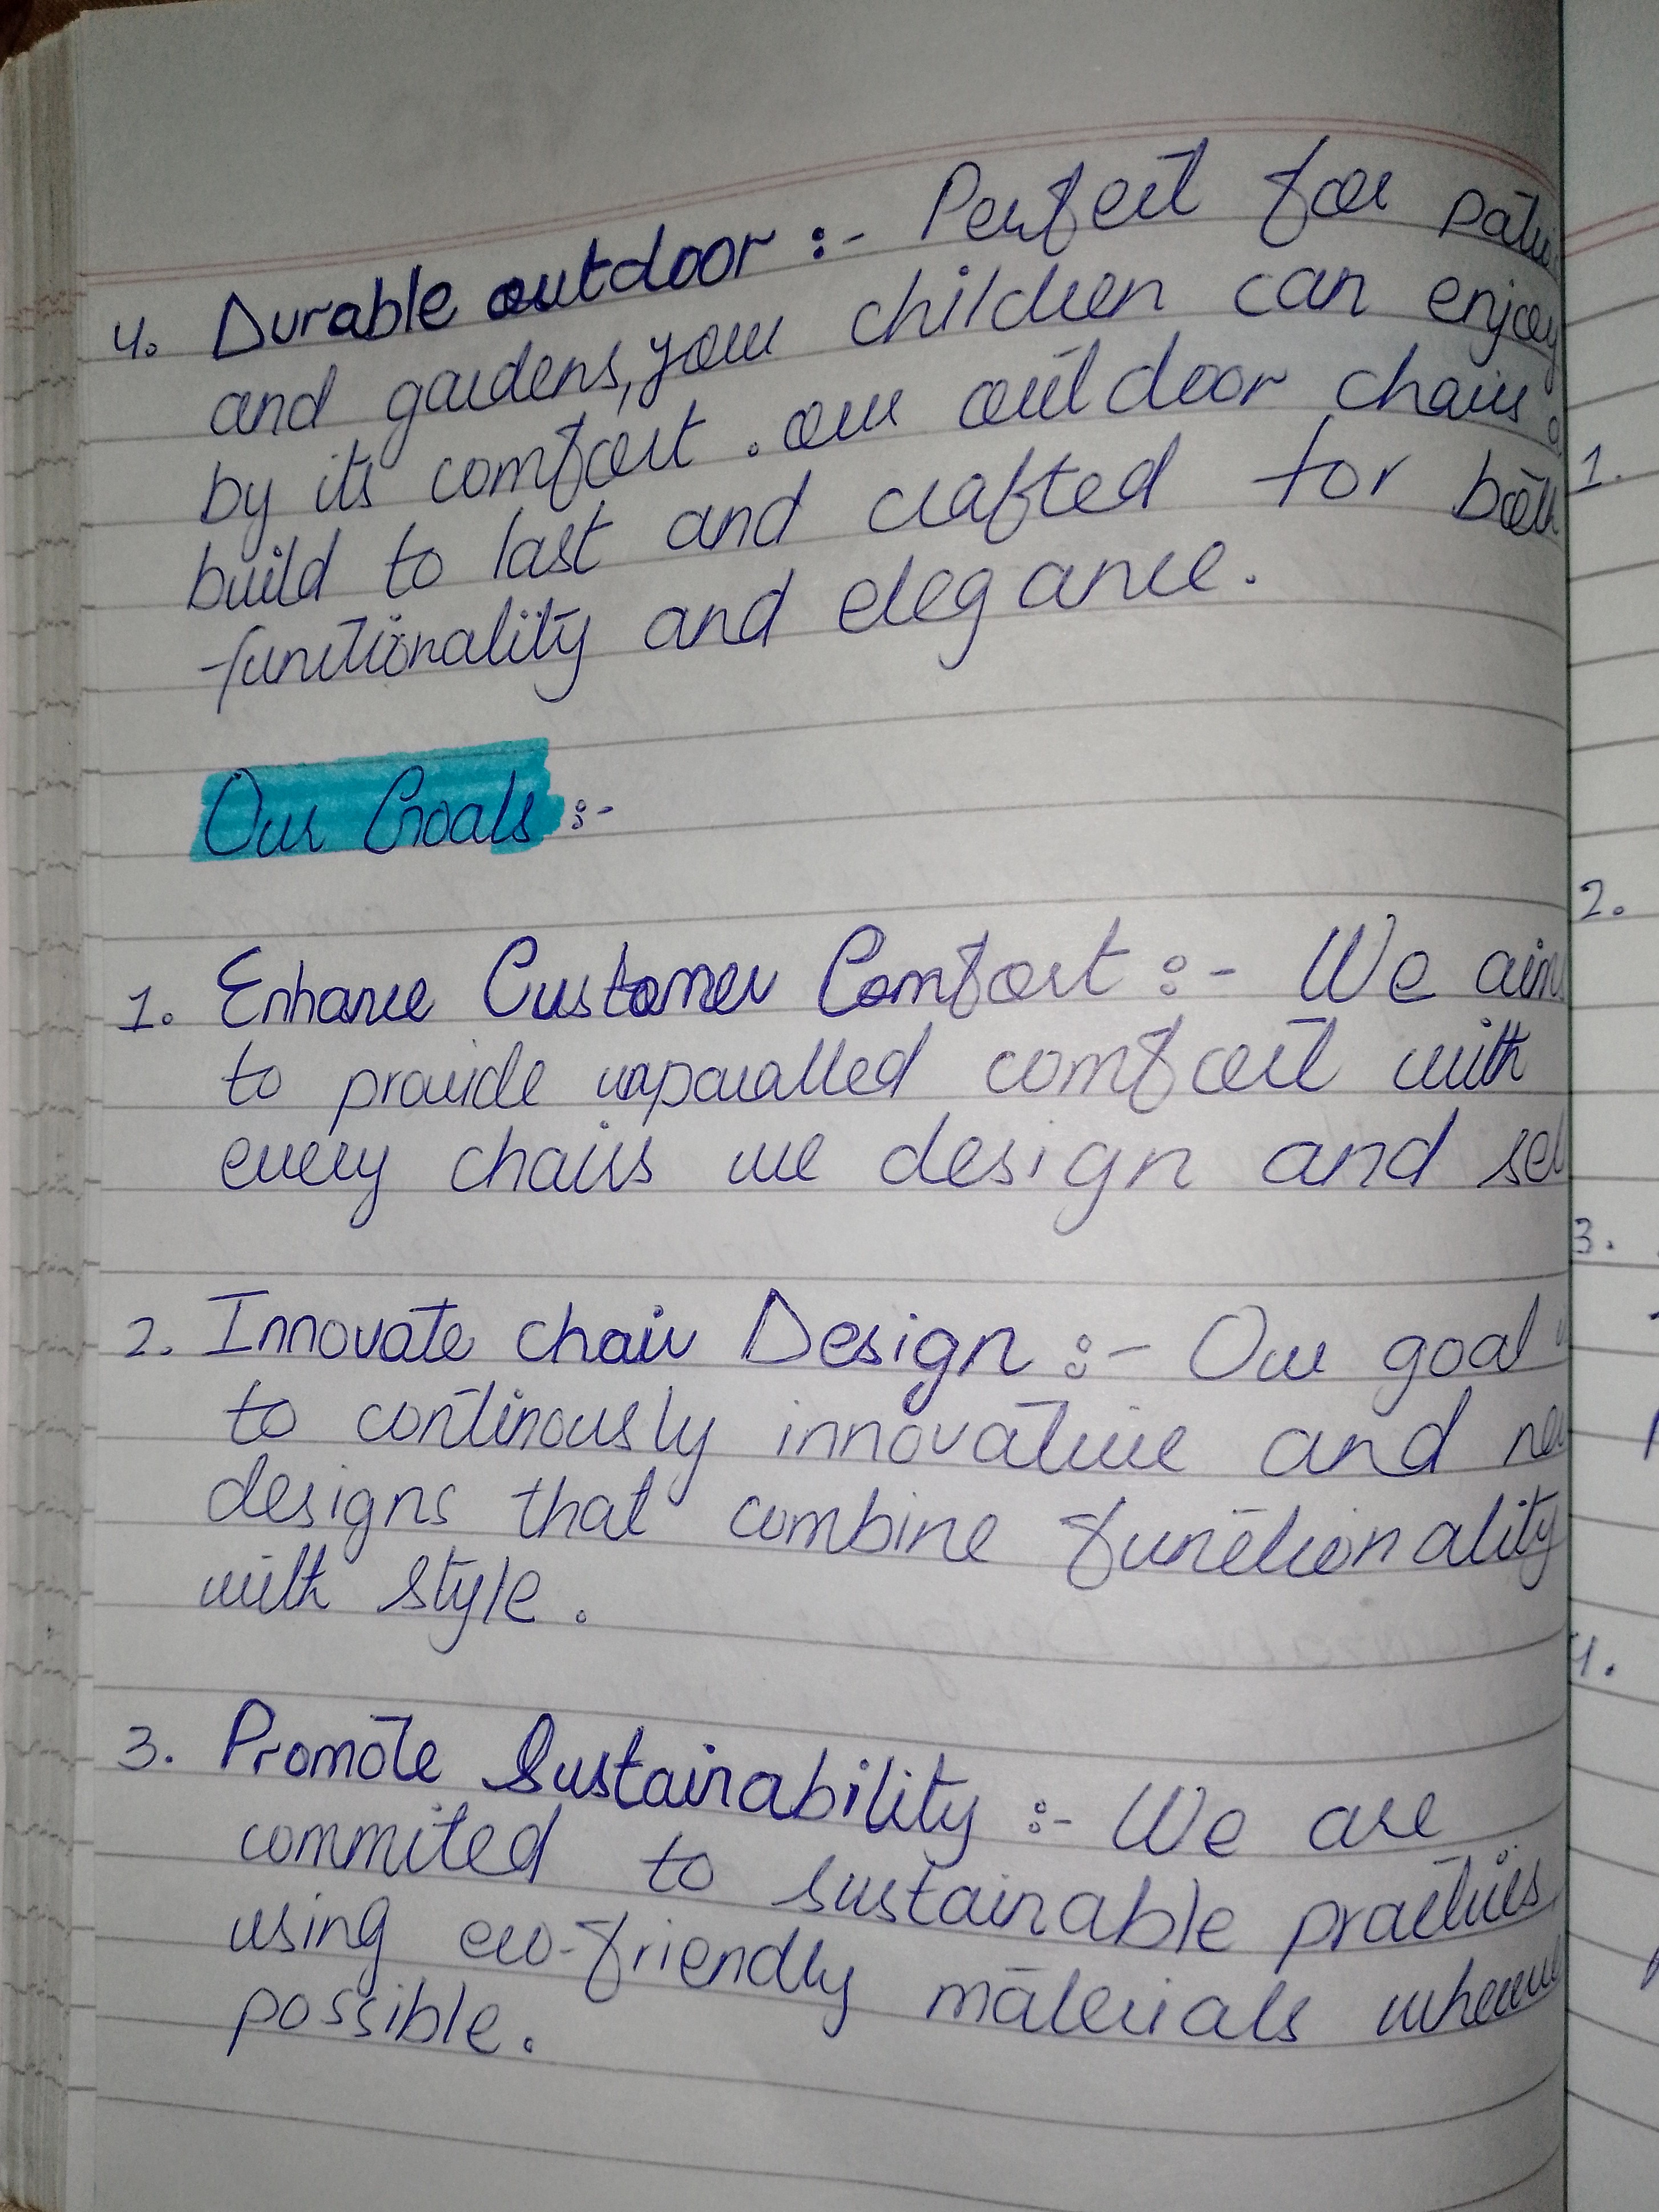 4. Durable outdoor :- Perfect for
and gardens, your children can enjoy
by its comfort . our outdoor chairs
build to last and crafted for both
functionality and elegance.
Our Goals :-
1. Enhance Customer Comfort :- We aim
to provide unparalled comfort with
every chairs we design and
2. Innovate chair Design :- Our goal
to continously innovative and
designs that combine functionality
with style .
3. Promote Sustainability :- We are
commited to sustainable practices
using eco-friendly materials
possible.
1.
2.
3.
4.